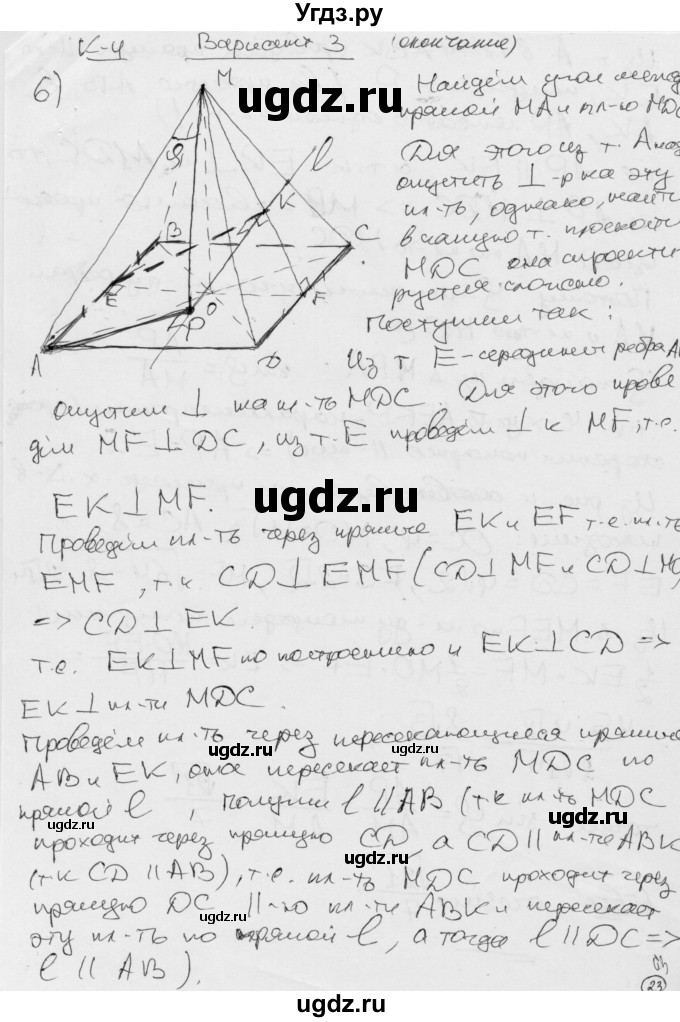 Угдз.ру
К-4 Вариант 3 (окончание)
6)
M
φ
l
B
K
C
E
O
P
F
A
D
Найдём угол межд
прямой MA и пл-ю MDC
Для этого из т. A надо
опустить ⊥-р на эту
пл-ть, однако, найти
в какую т. плоскости
MDC она спроекти
руется сложно.
Поступим так:
Из т. E-середины ребра AB
опустим ⊥ на пл-ть MDC. Для этого прове
дём MF⊥DC, из т. E проведём ⊥ к MF, т.е.
EK⊥MF.
Проведём пл-ть через прямые EK и EF т.е. пл-ть
EMF, т.к. CD⊥EMF (CD⊥MF и CD⊥MO)
=> CD⊥EK.
т.е. EK⊥MF по построению и EK⊥CD =>
EK⊥ пл-ти MDC.
Проведём пл-ть через пересекающиеся прямые
AB и EK, она пересекает пл-ть MDC по
прямой l, получим l ∥ AB (т.к пл-ть MDC
проходит через прямую CD, а CD ∥ пл-ти ABK
(т.к CD ∥ AB), т.е. пл-ть MDC проходит через
прямую DC ∥-ю пл-ти ABK и пересекает
эту пл-ть по прямой l, а тогда l ∥ DC =>
l ∥ AB).
23
ugdz.ru
ugdz.ru
ugdz.ru
ugdz.ru
ugdz.ru
ugdz.ru
ugdz.ru
ugdz.ru
ugdz.ru